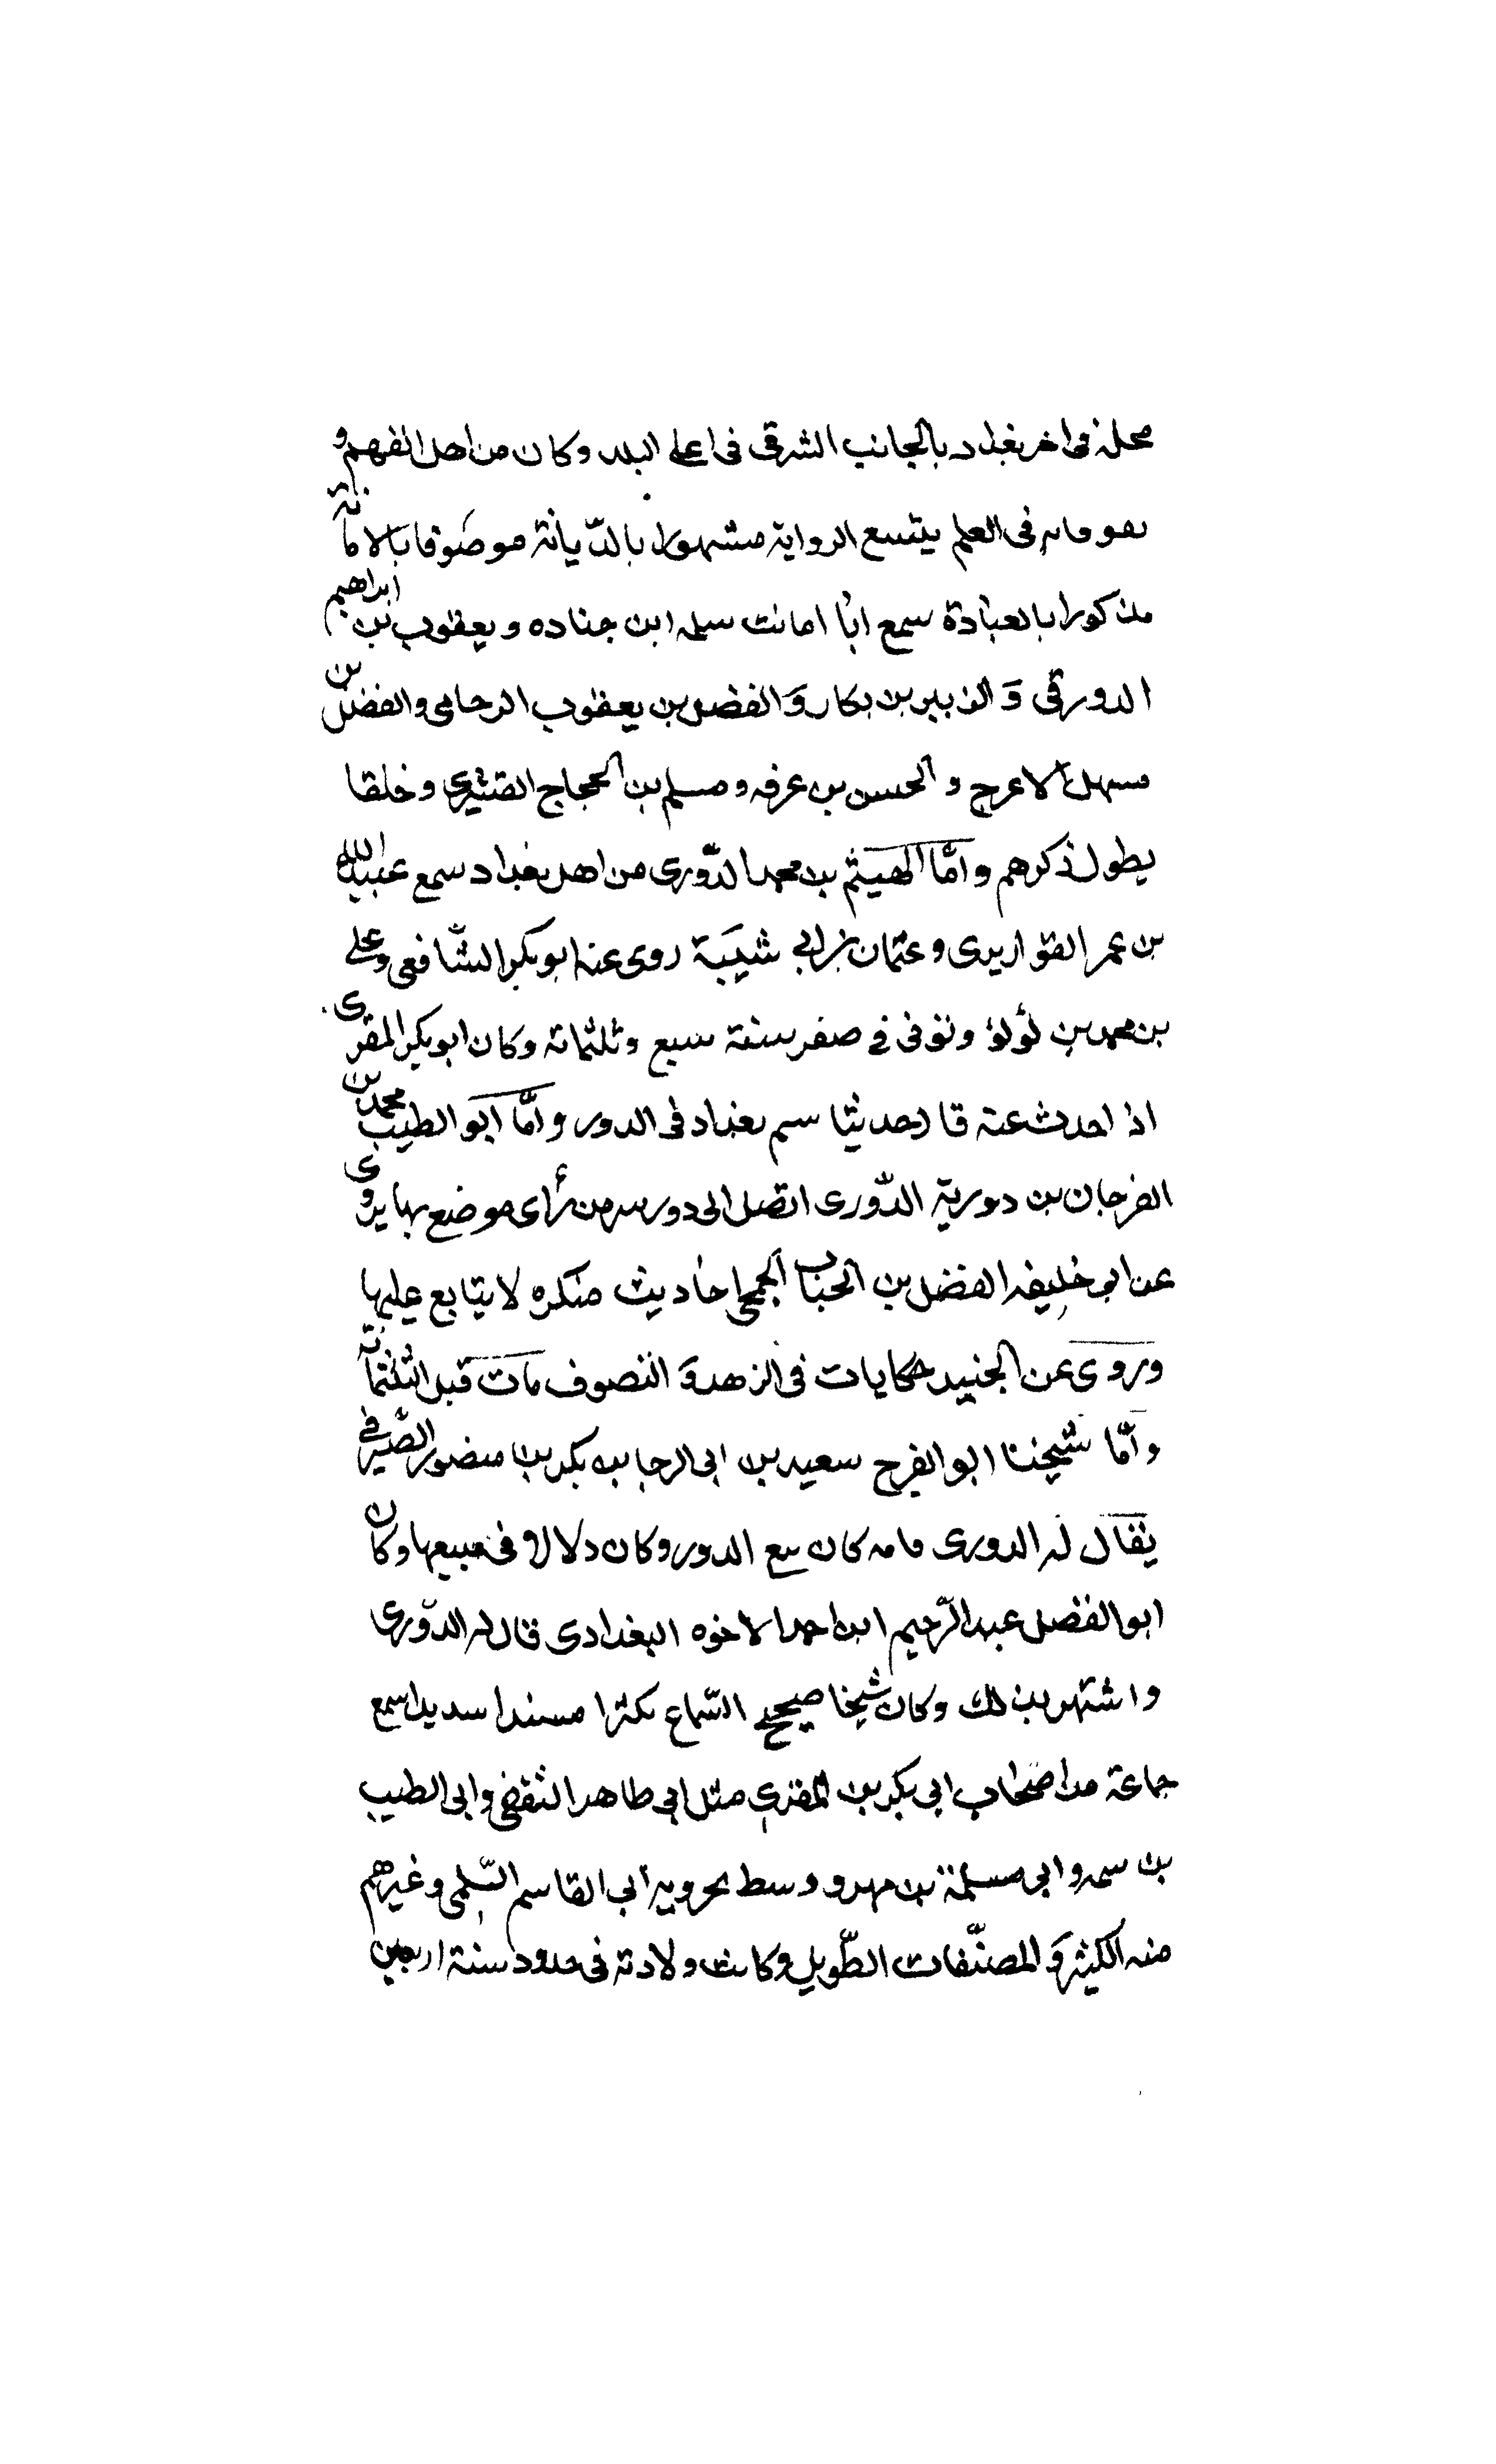 محلة فى اخر بغداد بالجانب الشرقى فى اعلى البلد وكان من اهل الفهم و
فى العلم يتسع الرواية مشهورا بالدّيانة موصوفا بالامانة
مذكورا بالعبادة سمع ابا سلم ابن جناده ويعقوب بن ابراهيم
الدورقى وَ الزبير بن بكار وَ الفضل بن يعقوب الرخامى والفضل بن
سهل الاعرج و الحسن بن عرفه ومسلم بن الحجاج القشيرى وخلقا
يطول ذكرهم وامّا الهيثم بن محمد الدّورى من اهل بغداد سمع عبيد الله
بن عمر القواريرى وعثمان بن ابى شيبَة روى عنه ابو بكر الشّافعى وعلى
بن محمد بن لؤلؤ وتوفى فى صفر سنة سبع وثلثمائة وكان ابو بكر المقرى
اذا حدث عنه قال حدثنا بغداد فى الدور وامّا ابو الطيب محمد بن
الفرجان بن دورية الدّورى اتصل الى دور سر من رأى موضع بها يروى
عن ابى خليفه الفضل بن الحباب الجمحى احاديث منكره لا يتابع عليها
وروى عن الجنيد حكايات فى الزهد وَ التصوف مات قبل الثلثمائة
وامّا شيخنا ابو الفرج سعيد بن ابى الرجا بن بكر بن منصور الصّيرفى
يقال له الدورى كان الدور وكان دلالا فى مبيعها وكان
ابو الفضل عبد الرّحيم ابن احمد الاخوه البغدادى قال له الدوّرى
واشتهر بذلك وكان شيخا صحيح السّماع مكثرا مسندا سديدا سمع
جماعة من اصحاب ابى بكر بن المقرى مثل ابى طاهر الثقفى وابى الطيب
بن وابى مسلمة بن وسط ابى القاسم السّلمى وغيرهم
منه الكثير وَ المصنّفات الطّويل وكانت ولادته فى حدود سنة اربعين